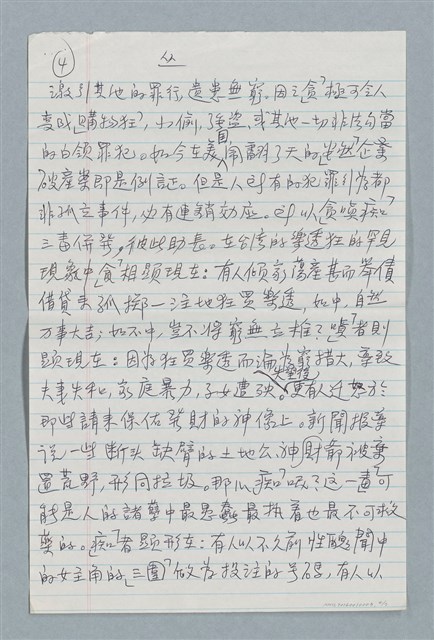 ④
激引其他的罪行，遺患無窮。因之「貪」極可令人
變成「購物狂」，小偷，強盜，或其他一切非法勾當
的白領罪犯。如今在美國鬧翻了天的「安然」企業
破產案即是例証。但是人所有的犯罪引為都
非孤立事件，必有連銷効應。所以「貪嗔痴」
三毒併發，彼此助長。在台灣的樂透狂的罕見
現象中「貪」相顯現在：有人傾家蕩產甚而舉債
借貸來孤擲一注地狂買樂透，如中，自然
万事大吉；如不中，豈不將窮無立椎？「嗔」者則
顯現在：因為狂買樂透而淪為窮措大，導致
夫妻失和，家庭暴力，子女遭殃。失望後更有人迁怒於
那些請來保佑發財的神像上。新聞報導
說一些斷头缺臂的土地公，神財爺被棄
置荒野，形同垃圾。那麼「痴」呢？這一盡可
能是人的諸孽中最愚蠢最执着也最不可救
藥的。「痴」者顯形在：有人以不久前性醜聞中
的女主角的「三圍」做為投注的号碼，有人以